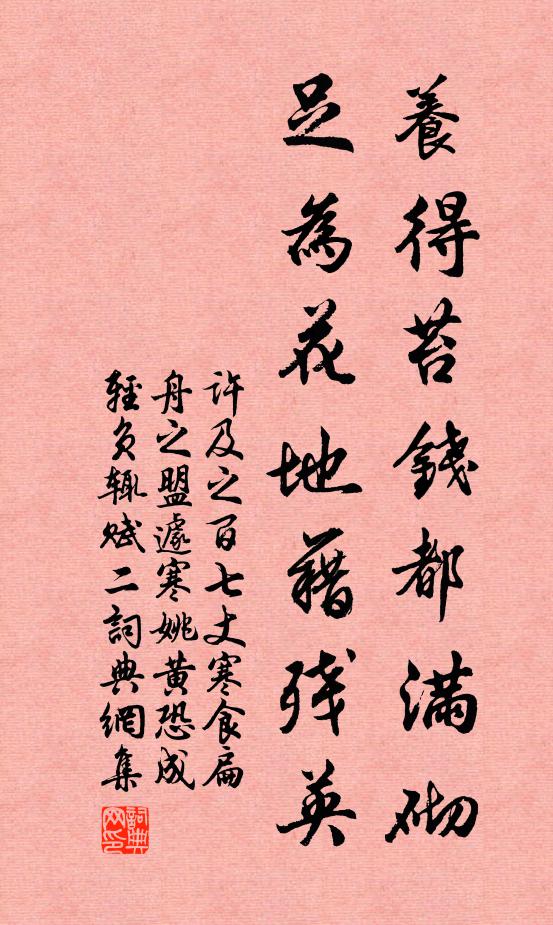 養得苔錢都滿砌
足為花地藉残英
許及之百七丈寒食扁
舟之盟遽寒姚黃恐成
輕負輒賦二詞典網集
詞典网印